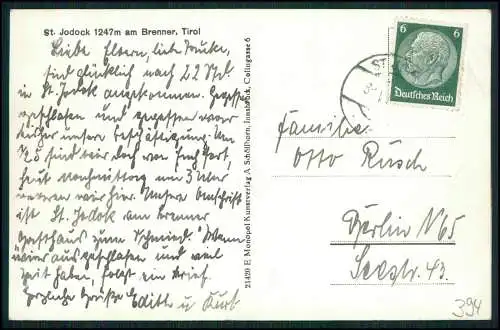 St. Jodock 1247m am Brenner, Tirol
Liebe Eltern, liebe
sind glücklich nach 22 Std.
in St. Jodok angekommen. Gegessen
geschlafen und gegessen war
bisher unsere Beschäftigung. Um
sind wir doch von fort,
heut Nachmittag um 3 Uhr
waren wir hier. Unsere Anschrift
ist St. Jodok am Brenner
Gasthaus zum Schmied. Wenn
wir ausgeschlafen und viel
Zeit haben, folgt ein Brief.
Herzliche Grüße Edith u Kurt
21420 E Monopol Kunstverlag A Schöllhorn, Innsbruck, Colingasse 6
6
6
Deutsches Reich
Familie
Otto Rusch
Berlin N 65
Seestr. 43.
394